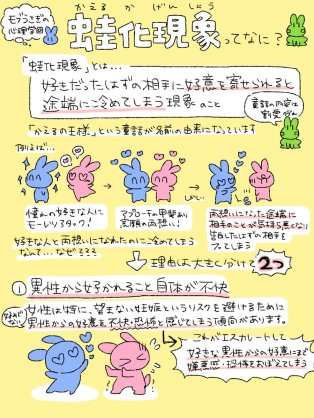 モブうさぎの
心理学園
かえる か げんしょう
蛙化現象ってなに？
「蛙化現象」とは…
好きだったはずの相手に好意を寄せられると
途端に冷めてしまう現象のこと
童話の内容は
割愛
「かえるの王様」という童話が名前の由来になっています
例えば…
憧れの好きな人に
モーレツアタック！
アプローチの甲斐あり
念願の両想い！
両想いになった途端に
相手のことが気持ち悪くなり
告白したはずの相手を
フってしまう
好きな人と両想いになれたのにご冷めてしまう
なんて…なぜ？そう
理由は大きく分けて2つ
① 男性から好かれること自体が不快
女性は特に、望まない妊娠というリスクを避けるために
男性からの好意を不快・恐怖と感じてしまう傾向があります。
これがエスカレートして
好きな男性からの好意にまで
嫌悪感・恐怖をおぼえてしまう